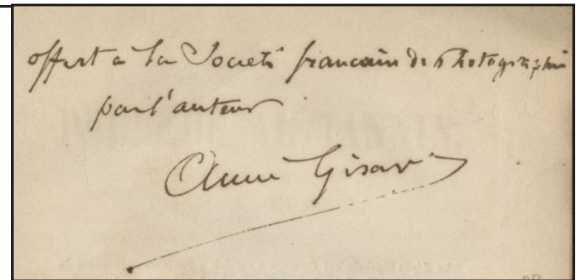 offert à la Société française de Photographie
par l'auteur
Aimé Girard